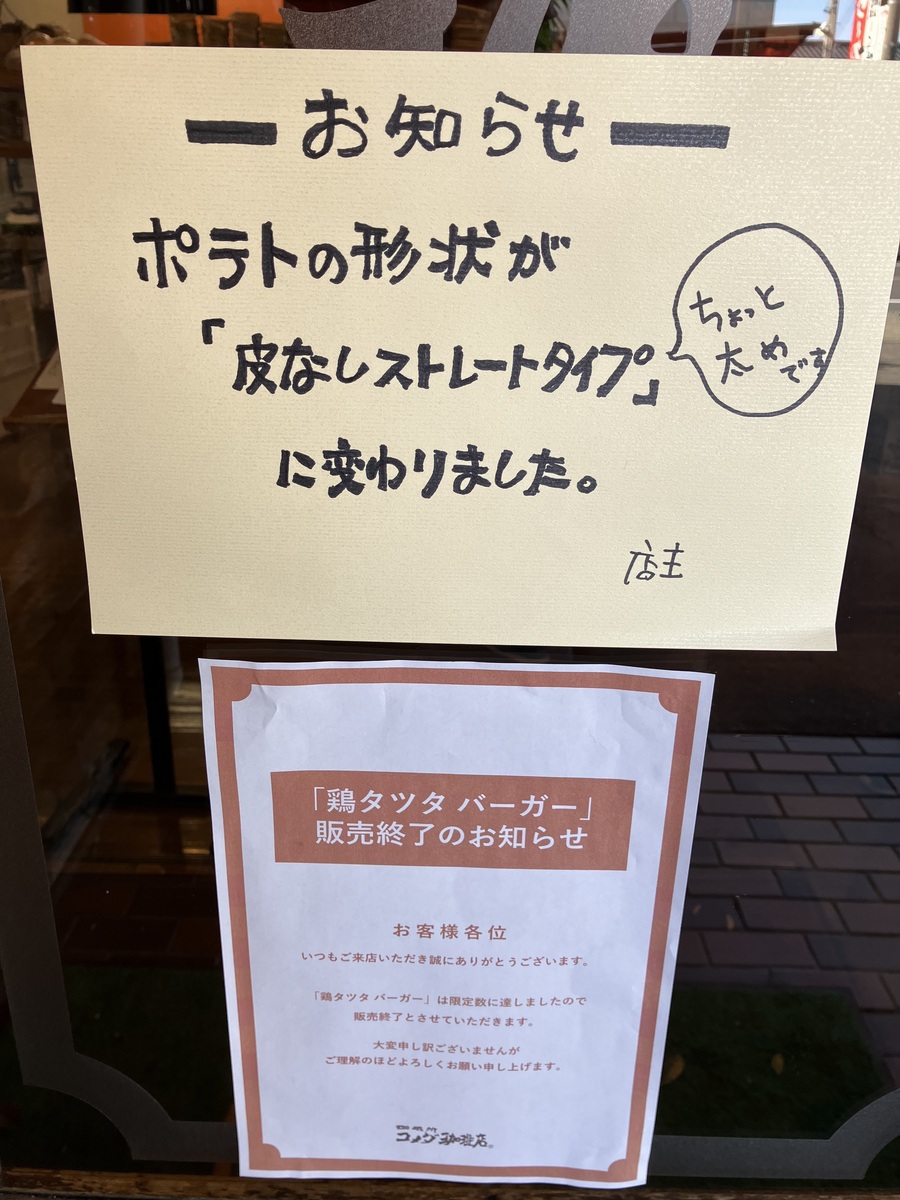 お知らせ
ポテトの形状が
「皮なしストレートタイプ」
ちょっと
太めです
に変わりました。
店主
「鶏タツタ バーガー」
販売終了のお知らせ
お客様各位
いつもご来店いただき誠にありがとうございます。
「鶏タツタ バーガー」は限定数に達しましたので
販売終了とさせていただきます。
大変申し訳ございませんが
ご理解のほどよろしくお願い申し上げます。
珈琲所
コメダ珈琲店